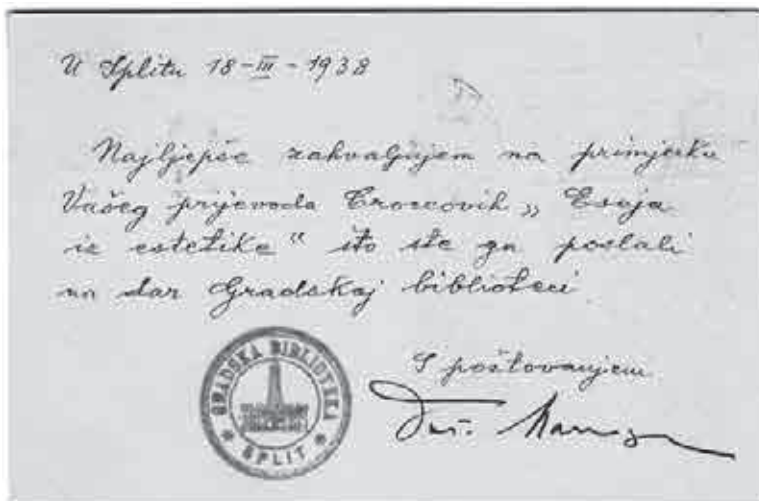 U Splitu 18-III-1938
Najljepše zahvaljujem na primjerku
Vašeg prijevoda Croceovih „Eseja
iz estetike“ što ste ga poslali
na dar Gradskoj biblioteci.
S poštovanjem
GRADSKA BIBLIOTEKA
* SPLIT *